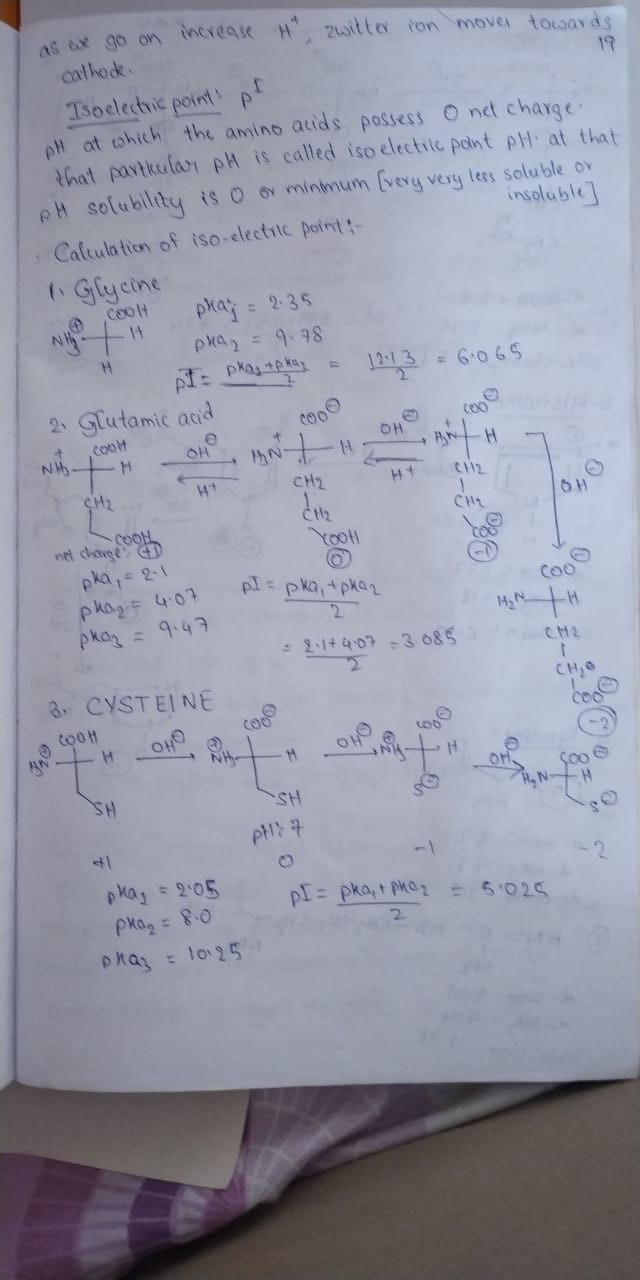 as we go on increase H⁺, zwitter ion moves towards
19
cathode.
Isoelectric point: pI
pH at which the amino acids possess 0 net charge.
that particular pH is called isoelectric point pH. at that
pH solubility is 0 or minimum [very very less soluble or
insoluble]
Calculation of iso-electric point:-
1. Glycine
COOH
NH₃⊕ H
H
pka₁ = 2.35
pka₂ = 9.78
pI = pka₁+pka₂ / 2 = 12.13 / 2 = 6.065
2. Glutamic acid
COOH
NH₃⁺ H
CH2
COOH
net charge: +1
OH⊖
H⁺
COO⊖
H₃N⁺ H
CH2
CH2
COOH
0
OH⊖
H⁺
COO⊖
H₃N⁺ H
CH2
CH2
COO⊖
-1
OH⊖
COO⊖
H₂N H
CH2
CH2
COO⊖
-2
pka₁ = 2.1
pka₂ = 4.07
pka₃ = 9.47
pI = pka₁+pka₂ / 2
= 2.1+4.07 / 2 = 3.085
3. CYSTEINE
COOH
H₃N⊕ H
SH
+1
OH⊖
COO⊖
NH₃⊕ H
SH
pH: 7
0
OH⊖
COO⊖
NH₃⊕ H
S⊖
-1
OH⊖
COO⊖
H₂N H
S⊖
-2
pka₁ = 2.05
pka₂ = 8.0
pka₃ = 10.25
pI = pka₁+pka₂ / 2 = 5.025